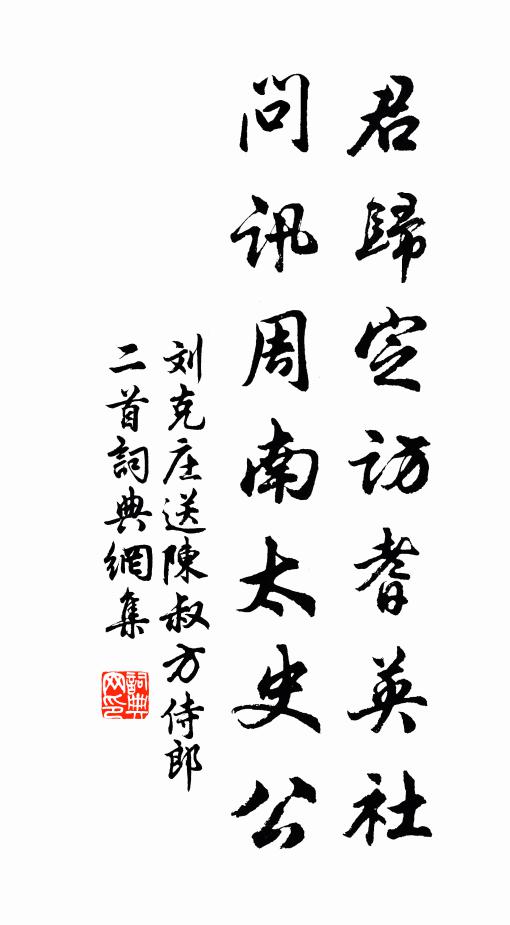 君歸定訪耆英社
問訊周南太史公
刘克庄送陳叔方侍郎
二首詞典網集
詞典
网印